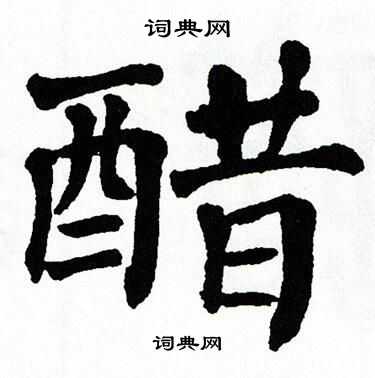 词典网
醋
词典网